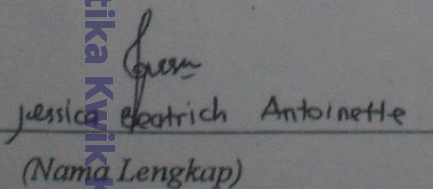 tika Kwik
Jessica Beatrich Antoinette
(Nama Lengkap)